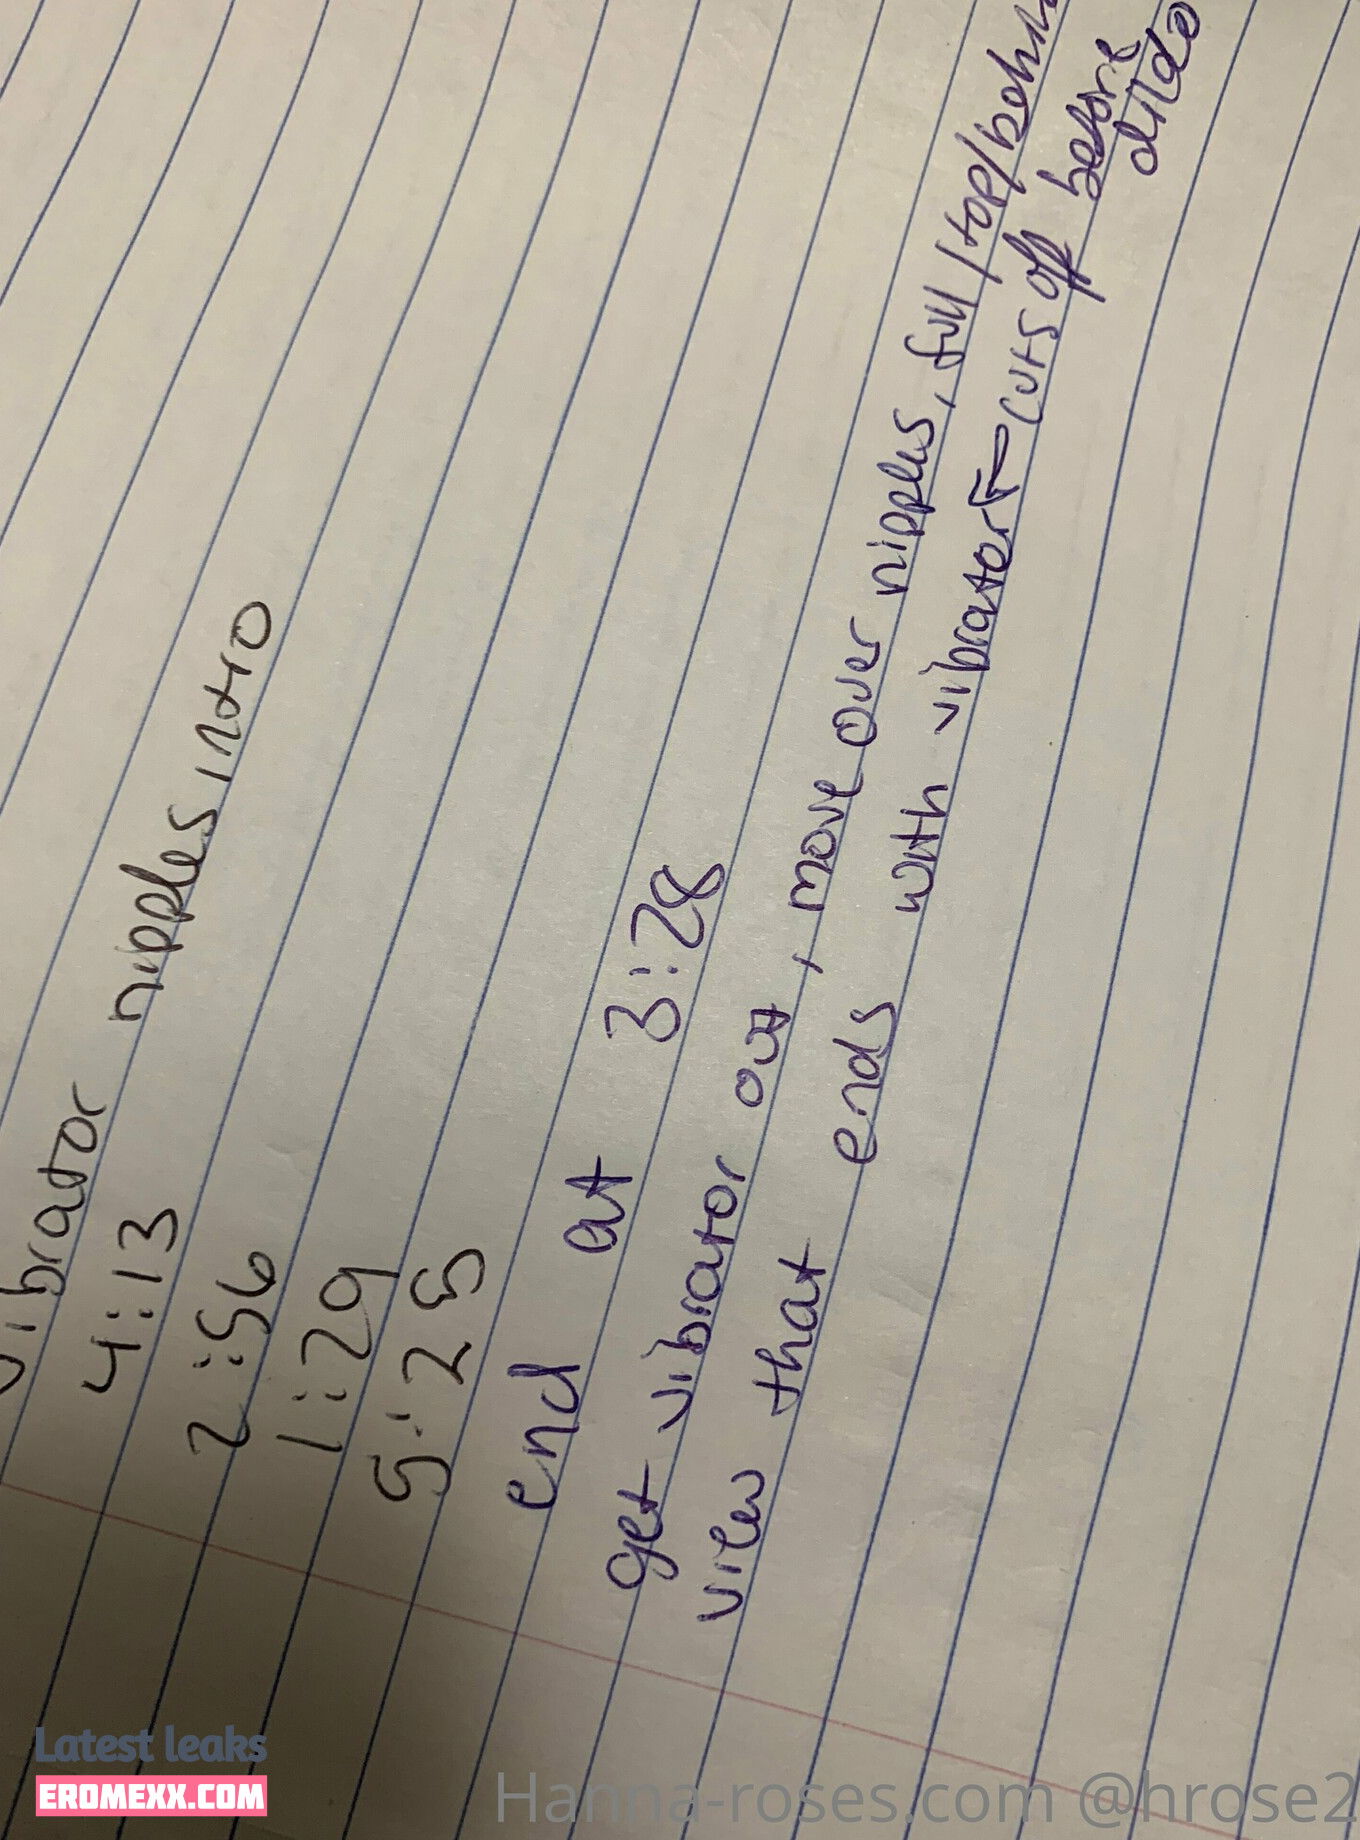 vibrator nipples intro
4:13
2:56
1:29
5:25
end at 3:28
get vibrator out, move over nipples, full/top/behin
view that ends with vibrator cuts off before
dildo
Latest leaks
EROMEXX.COM
Hanna-roses.com @hrose2